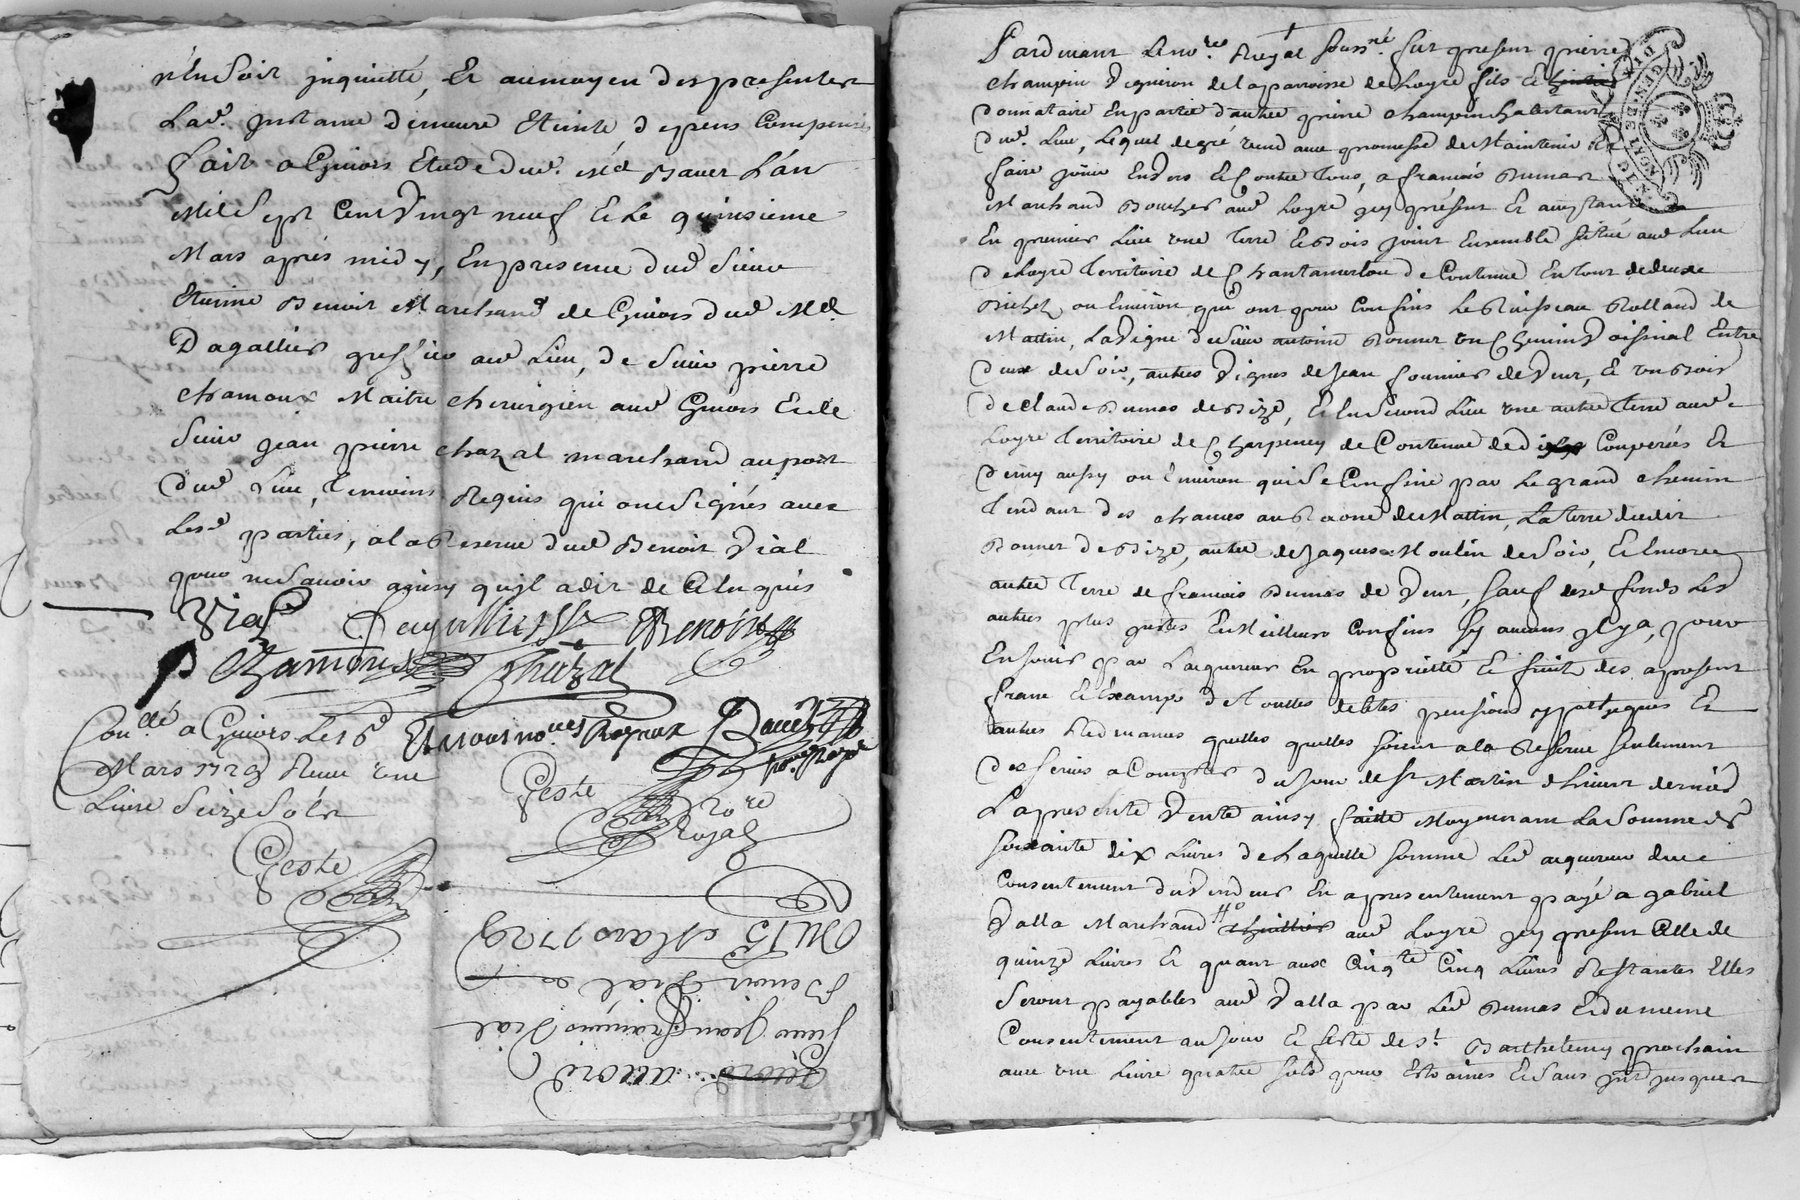 n'en soit inquietté, Et aumoyen des presentes
Lad. Instance demeure Eteinte depens Compensés
fait a Givors Etude dud. Me Bauer L'an
Mil Sept Cent Vingt neuf Et Le quinsieme
Mars aprés midy, En presence dud Sieur
Etienne Benoit Marchand de Givors dud Me
Dagallier greffier aud Lieu, de Sieur pierre
chamoux Maitre chirurgien aud Givors Et de
Sieur jean pierre chazal marchand au port
dud Lieu, Temoins Requis qui ont Signés avec
Lesd parties, a la Reserve dud Benoit Vial
pour ne Savoir ainsy qu'il a dit de Ce Enquis
Vial
Benoist
P Chamoux
Chazal
Con.llé a Givors Le 15e
Mars 1729 Reçu une
Livre Seize Sols
Geste
Et nous no.res Royaux
Bauer
no.re Royal
Geste
No.re
Royal
Du 15 Mars 1729
Benoit Vial
Sieur Jean François Vial
accord
Pardevant Le no.re Royal Souss.né fut present pierre
champin Vigneron de la parroisse de Loyre fils Et
Donnataire En partie d'autre pierre champin habitant
dud. Lieu, Lequel de gré vend avec promesse de Maintenir Et
faire joüir Envers Et Contre Tous, a françois Dumas
Marchand Boucher aud Loyre icy présent Et acceptant
En premier Lieu une Terre Et Bois joint Ensemble situé aud Lieu
de Loyre Territoire de Chantamerlou de Contenue En tout de deux
Bichés ou Environ qui ont pour Confins Le Ruisseau Rolland de
Matin, La Vigne du Sieur antoine Bonnet un Chemin Voisinal Entre
deux de Soir, autres Vignes de Jean fournier de Vent, Et un Bois
de claude Dumas de Bize, Et En Second Lieu une autre Terre aud
Loyre Territoire de Charpeney de Contenue de Couperés Et
demy aussy ou Environ qui Se Confine par Le grand chemin
Tendant des chames au Rône de Mattin, La Terre dudit
Bonnet de Bize, autre de Jaques Moulin de Soir, Et Encore
autre Terre de françois Dumas de Vent, Sauf desd fonds Les
autres plus justes Et Meilleurs Confins Sy aucuns il y a, pour
En jouir par L'acquereur En proprietté Et fruits des a present
franc Et Exempt de Touttes debtes pensions ypotheques Et
autres Redevances quelles quelles soient a la Reserve seulement
des servis a Compter du jour de St Martin d'hiuert dernier
La presente Vente ainsy faitte Moyennant La Somme de
soixante dix Livres de Laquelle somme Led acquereur du
Consentement du Vendeur En a presentement payé a gabriel
Valla Marchand aud Loyre icy present Celle de
quinze Livres Et quant aux Cinq.te Cinq Livres Restantes Elles
Seront payables aud Valla par Led Dumas Et du meme
Consentement au jour Et feste de St Barthelemy prochain
avec une Livre quatre sols pour Etraines Et Sans jnt jusques
GEN. DE LYON